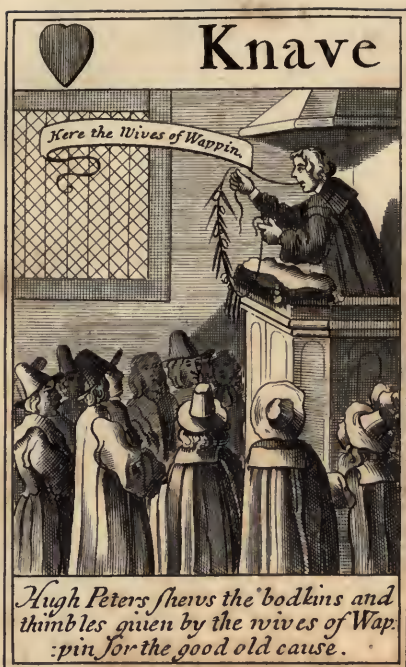 Knave
Here the Wives of Wappin.
Hugh Peters ſhews the bodkins and
thimbles giuen by the wives of Wap
:pin for the good old cauſe.